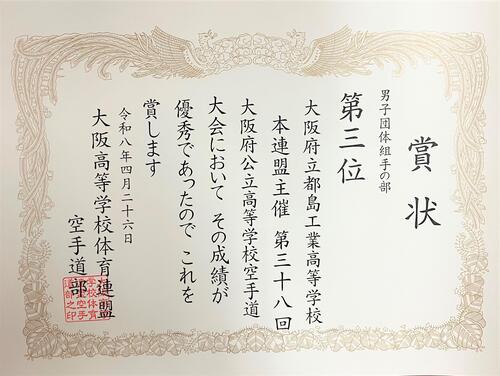 賞状
男子団体組手の部
第三位
大阪府立都島工業高等学校
本連盟主催 第三十八回
大阪府公立高等学校空手道
大会において その成績が
優秀であったので これを
賞します
令和八年四月二十六日
大阪高等学校体育連盟
空手道部